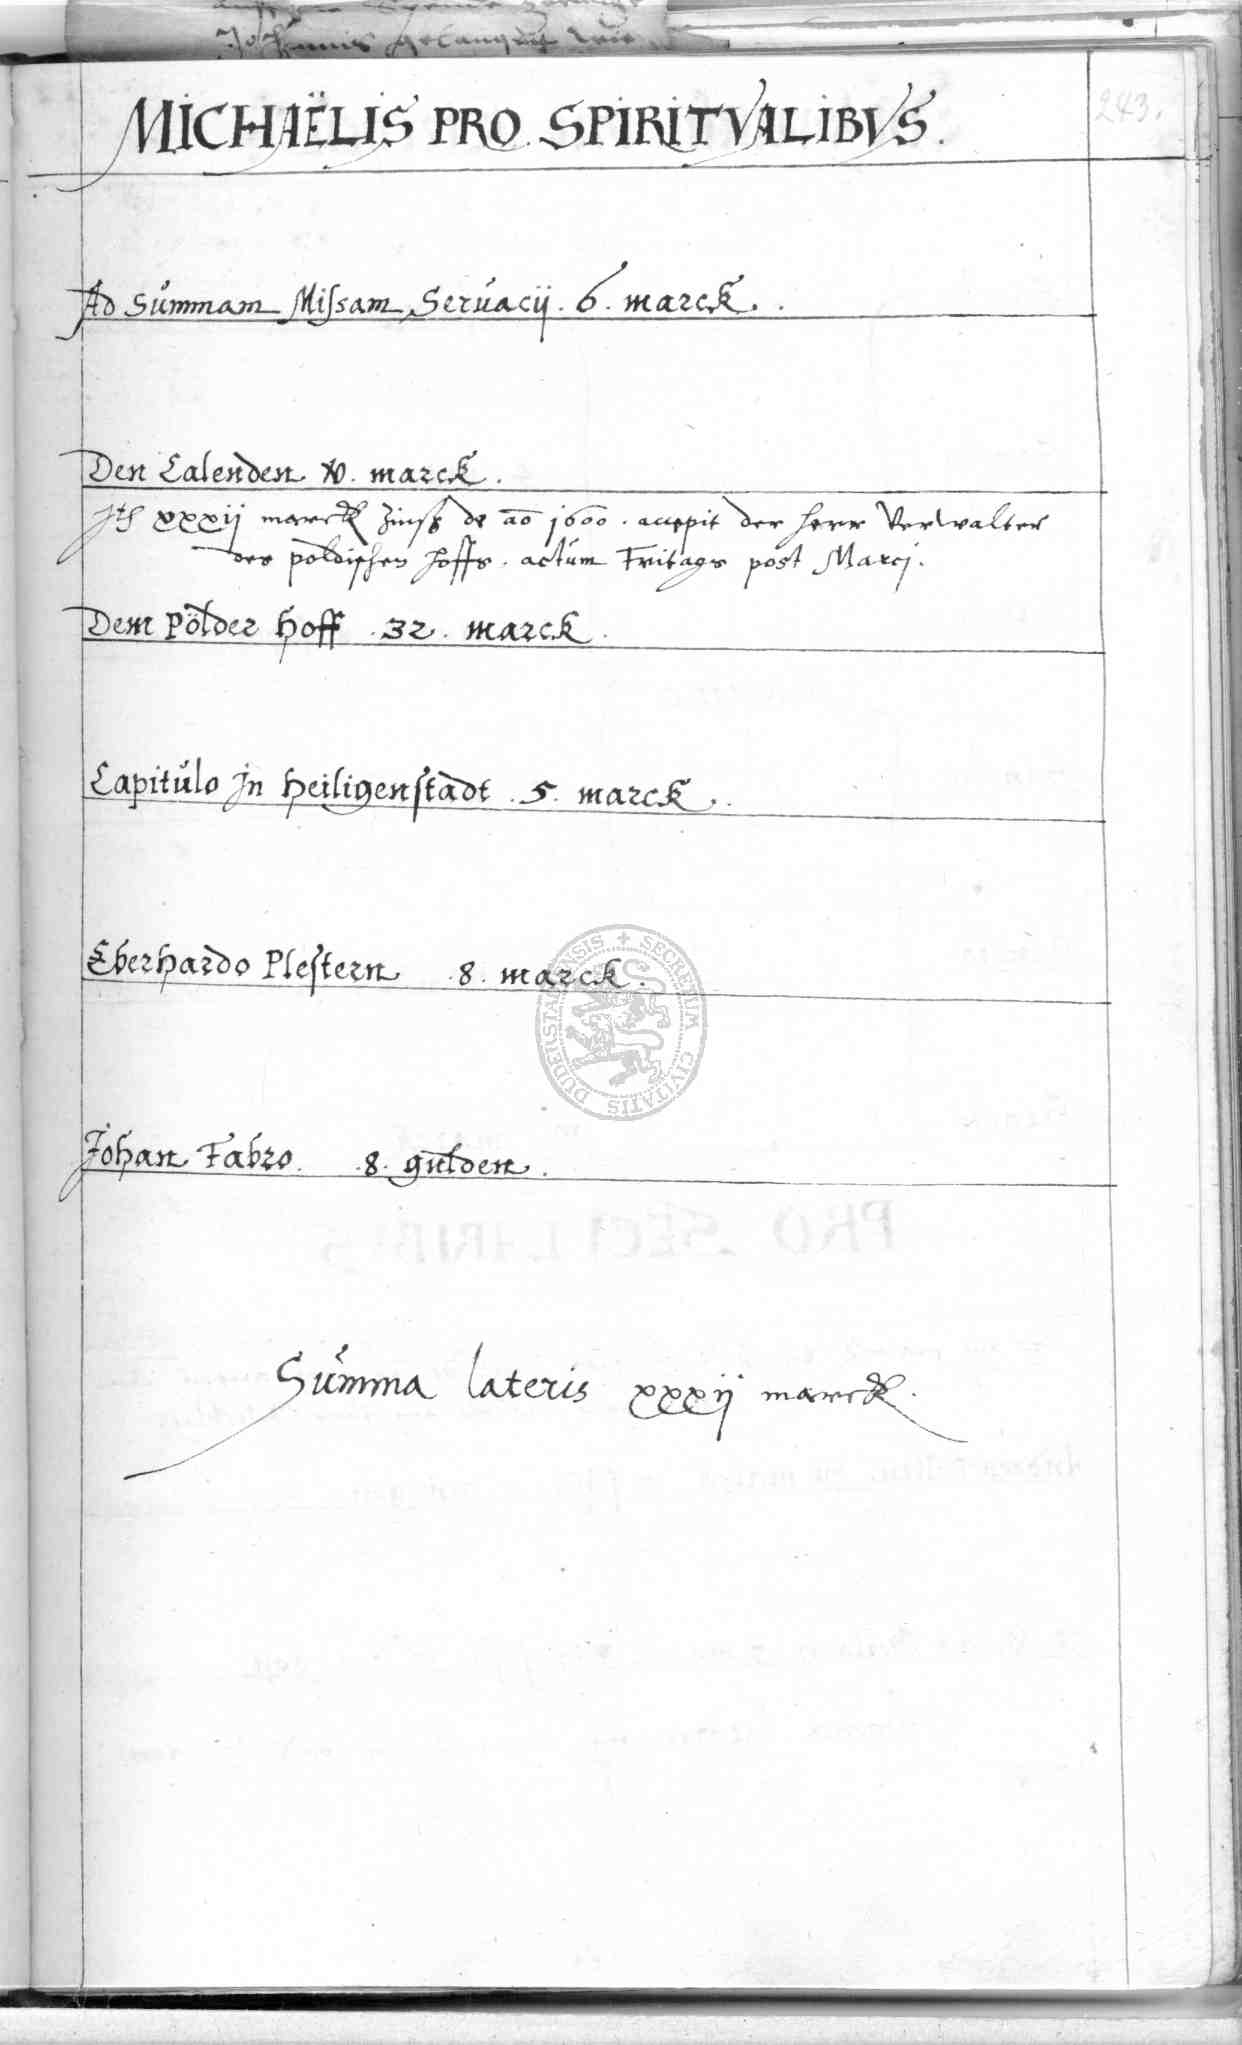 Johannis
MICHAËLIS PRO SPIRITVALIBVS.
243.
Ad Summam Missam Seruacij. 6. marck.
Den Calenden marck.
xxxij marck Zinß de ao 1600. accepit der Herr Verwalter
des poldischen Hoffs. actum Fritags post Marcj.
Dem Pölder Hoff .32. marck.
Capitulo jn Heiligenstadt .5. marck.
Eberhardo Plestern .8. marck.
Johan Fabro .8. gulden.
Summa lateris xxxij marck.
SECRETUM CIVITATIS DUDERSTADENSIS